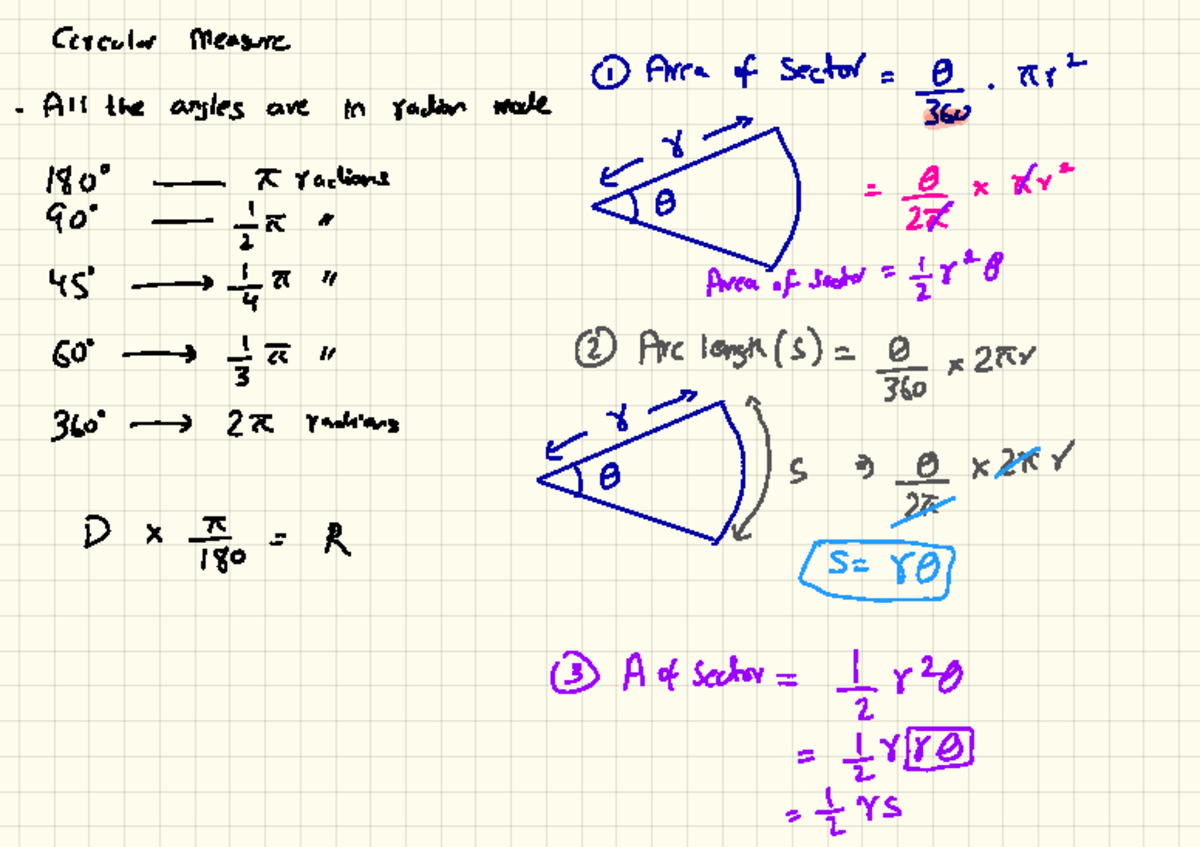 Circular Measure
- All the angles are in radian mode
180° — π radians
90° — 1/2 π "
45° → 1/4 π "
60° → 1/3 π "
360° → 2π radians
D × π/180 = R
① Area of Sector = θ/360 . πr²
r
θ
= θ/2π × πr²
Area of Sector = 1/2 r²θ
② Arc length (s) = θ/360 × 2πr
r
θ
s ⇒ θ/2π × 2πr
s = rθ
③ A of Sector = 1/2 r²θ
= 1/2 r rθ
= 1/2 rs